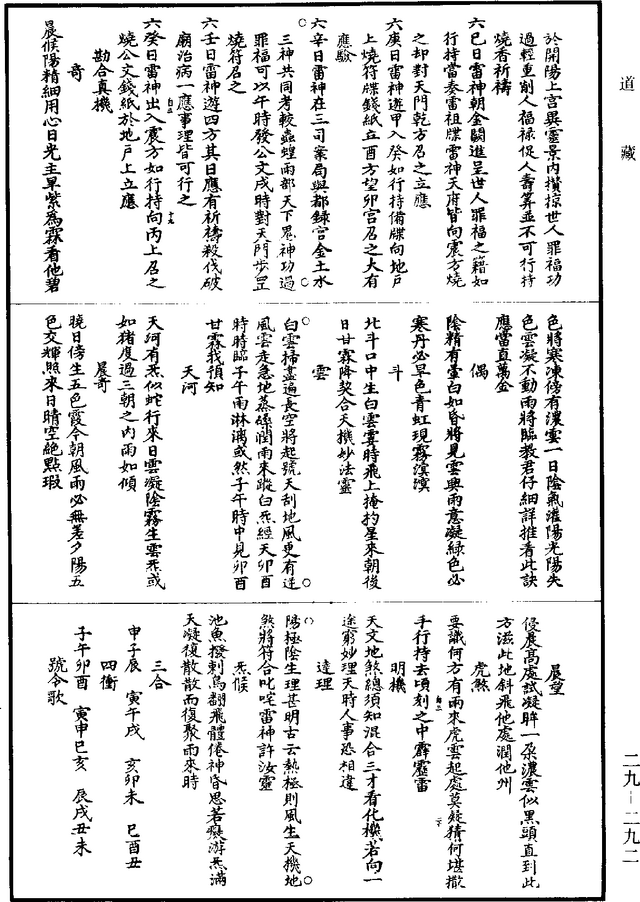 道藏
於開陽上宮異靈景內攢掠世人罪福功
過輕重削人福祿促人壽算並不可行持
燒香祈禱
六巳日雷神朝金闕進呈世人罪福之籍如
行持當奏雷祖牒雷神天府皆向震方燒
之却對天門乾方召之立應
六庚日雷神遊甲入癸如行持備牒向地戶
上燒符牒錢紙立酉方望卯宮召之大有
應驗
六辛日雷神在三司案局與都錄宮金土水
三神共同考較蟲蝗雨部天下鬼神功過
罪福可以午時發公文戌時對天門步罡
燒符召之
六壬日雷神遊四方其日應有祈禱殺伐破
廟治病一應事理皆可行之
六癸日雷神出入震方如行持向丙上召之
燒公文錢紙於地戶上立應
勘合真機
奇
晨候陽精細用心日光主旱紫為霖看他碧
色將寒凍傍有濃雲一日陰氣滃陽光陽失
色雲凝不動雨將臨教君仔細詳推看此訣
應當直萬金
偶
陰精有壹白如昏將見雲興雨意凝綠色必
寒丹必旱色青虹現霧溟溟
斗
北斗口中生白雲雲時飛上掩扚星來朝後
日甘霖降契合天機妙法靈
雲
白雲掃盡遍長空將起號天刮地風更有逆
風雲走急地蒸磉潤雨來蹤白炁經天卯酉
時時臨子午雨淋漓或然子午時中見卯酉
甘霖我預知
天河
天河有炁似蛇行來日雲凝陰霧生雲炁或
如猪度過三朝之內雨如傾
晨奇
曉日傍生五色霞今朝風雨必無差夕陽五
色交輝照來日晴空絕點瑕
晨望
侵晨高處試凝眸一朵濃雲似黑頭直到此
方滋此地斜飛他處潤他州
虎煞
要識何方有雨來虎雲起處莫疑猜何堪撒
手行持去頃刻之中霹靂雷
明機
天文地煞總須知混合三才看化機若向一
途窮妙理天時人事恐相違
達理
陽極陰生理甚明古云熱極則風生天機地
煞將符合叱咤雷神許汝靈
炁候
池魚撥剌鳥翻飛體倦神昏思若癡游炁滿
天凝復散散而復聚雨來時
三合
申子辰　寅午戌　亥卯未　巳酉丑
四衝
子午卯酉　寅申巳亥　辰戌丑未
號令歌
二九－二九二